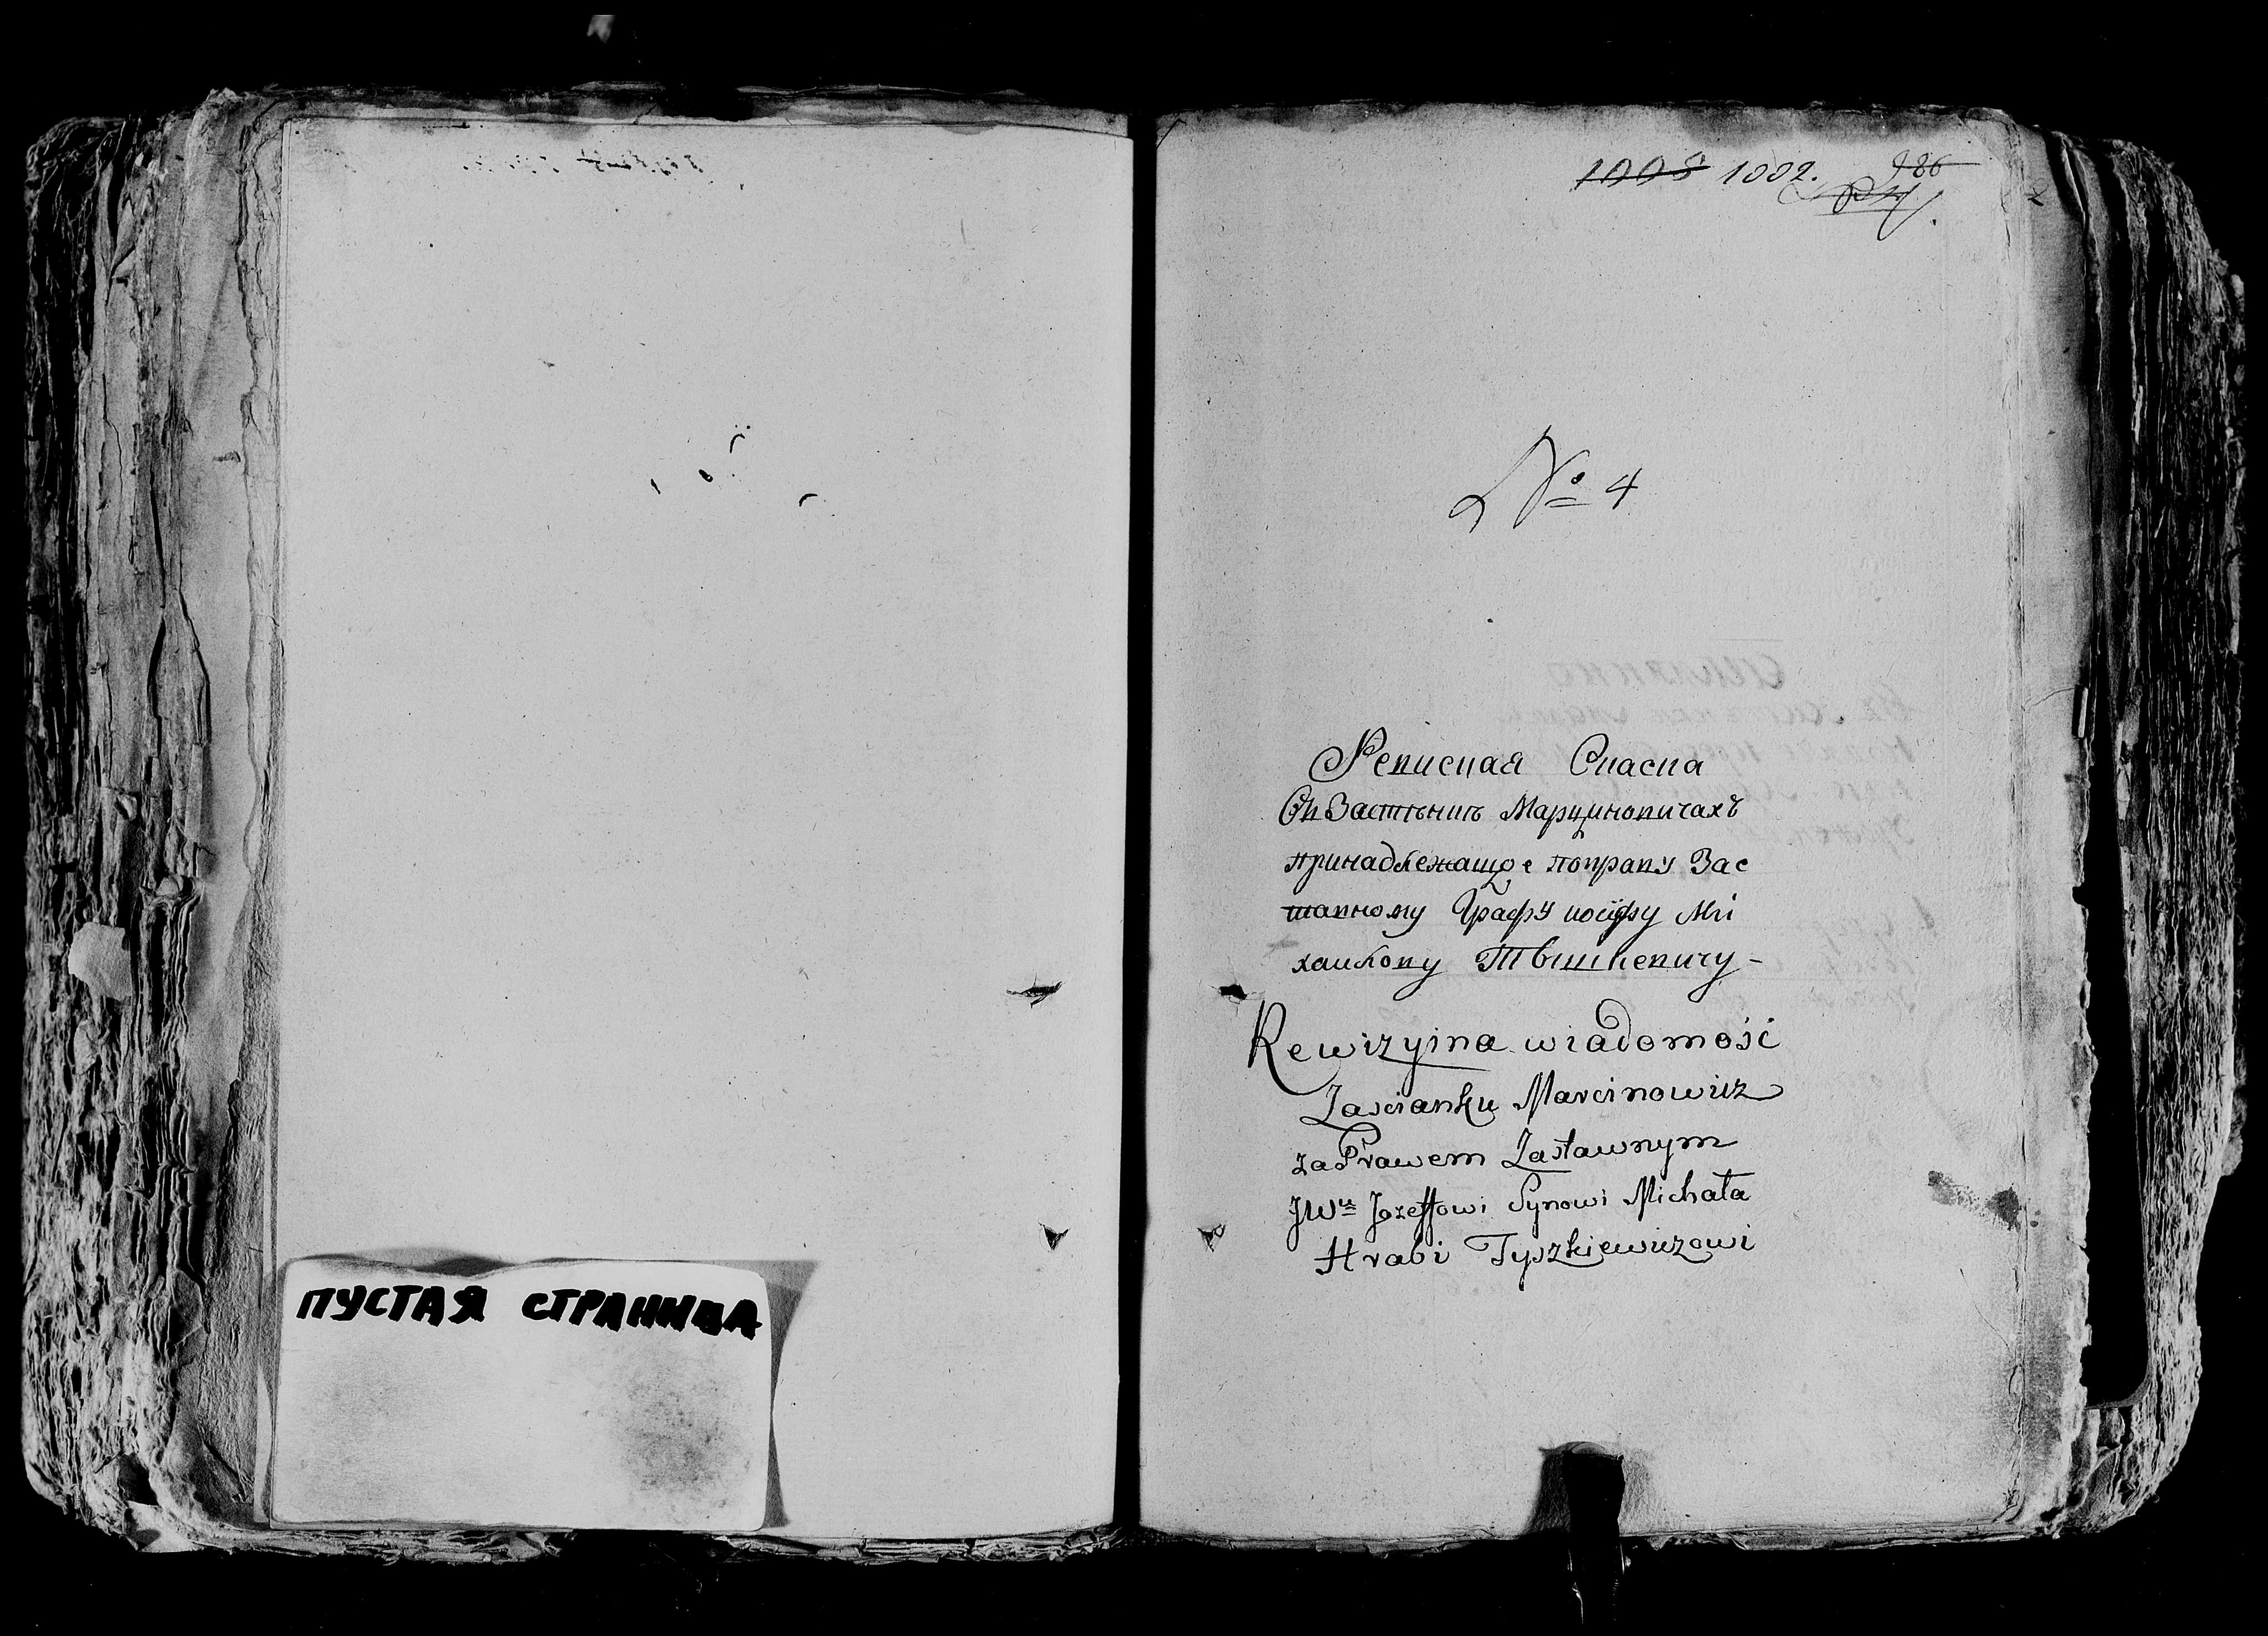 ПУСТАЯ СТРАНИЦА
1008 1002. 986
№ 4
Ревиская Скаска
Ов Застѣникѣ Марциновичахъ
принадлежащое поправу Зас
тавному Графу иосифу Ми
хаилову Твишкевичу -
Rewizyina wiadomość
Zascianku Marcinowicz
za Prawem Zastawnym
JWu Jozeffowi Synowi Michała
Hrabi Tyszkiewiczowi